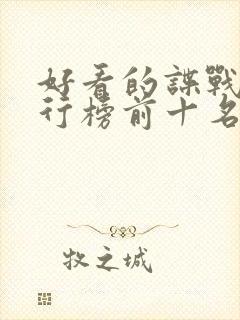 好看的諜戰
行榜前十名
牧之城